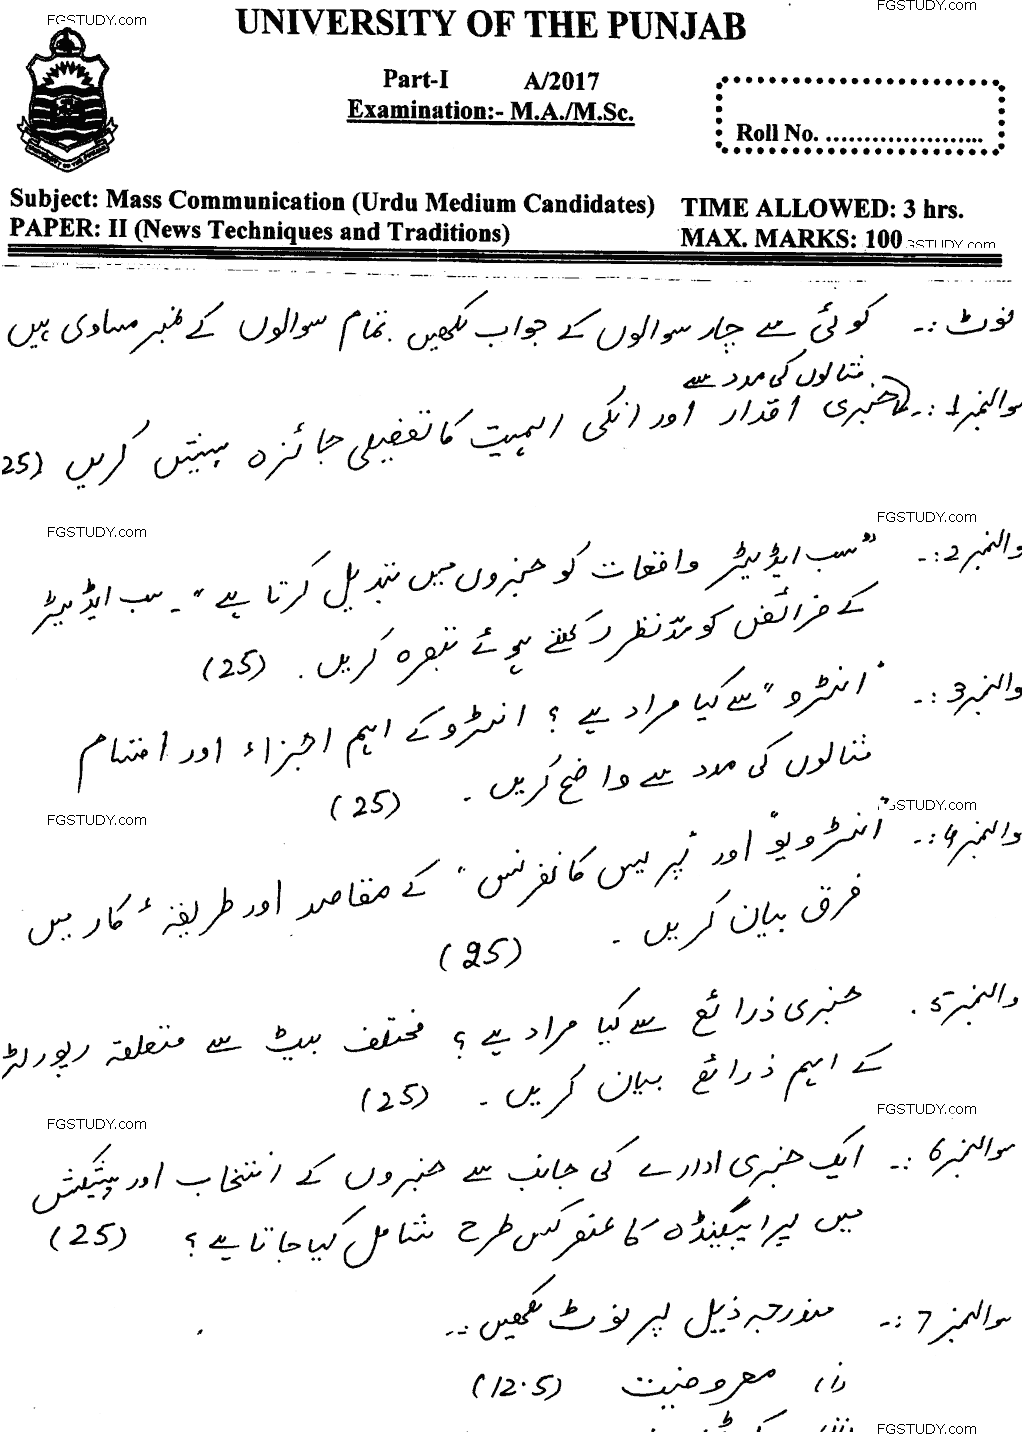 FGSTUDY.com
FGSTUDY.com
UNIVERSITY OF THE PUNJAB
Part-I A/2017
Examination:- M.A./M.Sc.
Roll No. ......................
Subject: Mass Communication (Urdu Medium Candidates) TIME ALLOWED: 3 hrs.
PAPER: II (News Techniques and Traditions) MAX. MARKS: 100
FGSTUDY.com
نوٹ :۔ کوئی سے چار سوالوں کے جواب لکھیں ۔ تمام سوالوں کے نمبر مساوی ہیں
مثالوں کی مدد سے
سوالنمبر 1 :۔ خبری اقدار اور انکی اہمیت کا تفصیلی جائزہ پیش کریں (25
FGSTUDY.com
FGSTUDY.com
والنمبر 2 :۔ "سب ایڈیٹر واقعات کو خبروں میں تبدیل کرتا ہے"۔ سب ایڈیٹر
کے فرائض کو مدّنظر رکھتے ہوئے تبصرہ کریں ۔ (25)
والنمبر 3 :۔ "انٹرو" سے کیا مراد ہے ؟ انٹرو کے اہم اجزاء اور اقسام
مثالوں کی مدد سے واضح کریں ۔ (25)
FGSTUDY.com
FGSTUDY.com
والنمبر 4 :۔ "انٹرویو" اور "پریس کانفرنس" کے مقاصد اور طریقۂ کار میں
فرق بیان کریں ۔ (25)
والنمبر 5 ۔ خبری ذرائع سے کیا مراد ہے ؟ مختلف بیٹ سے متعلقہ رپورٹر
کے اہم ذرائع بیان کریں ۔ (25)
FGSTUDY.com
FGSTUDY.com
سوالنمبر 6 :۔ ایک خبری ادارے کی جانب سے خبروں کے انتخاب اور پیشکش
میں پراپیگنڈہ کا عنصر کس طرح شامل کیا جاتا ہے ؟ (25)
سوالنمبر 7 :۔ مندرجہ ذیل پر نوٹ لکھیں :۔
(i) معروضیت (12.5)
FGSTUDY.com